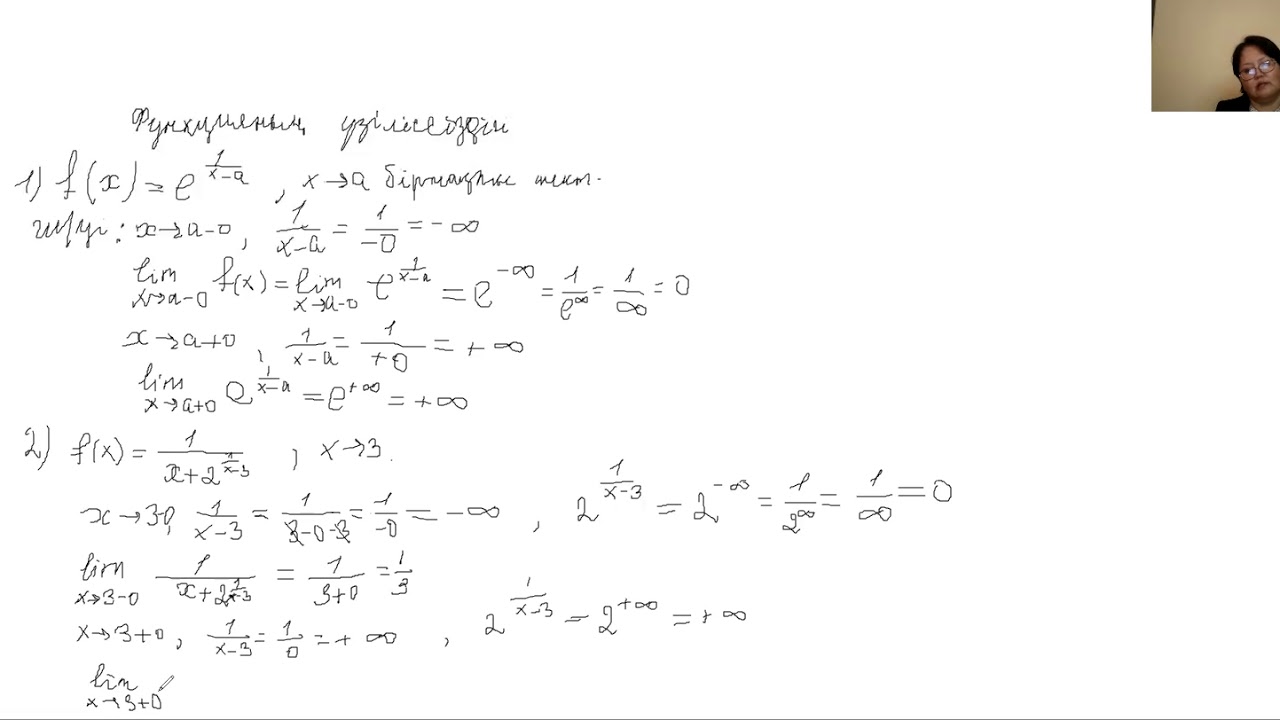 Функцияның үзіліссіздігі
1) f(x) = e^{\frac{1}{x-a}} , x→a біржақты шект.
шегі: x→a-0, \frac{1}{x-a} = \frac{1}{-0} = -∞
\lim_{x→a-0} f(x) = \lim_{x→a-0} e^{\frac{1}{x-a}} = e^{-∞} = \frac{1}{e^{∞}} = \frac{1}{∞} = 0
x→a+0, \frac{1}{x-a} = \frac{1}{+0} = +∞
\lim_{x→a+0} e^{\frac{1}{x-a}} = e^{+∞} = +∞
2) f(x) = \frac{1}{x+2^{\frac{1}{x-3}}} , x→3.
x→3-0, \frac{1}{x-3} = \frac{1}{3-0-3} = \frac{1}{-0} = -∞ , 2^{\frac{1}{x-3}} = 2^{-∞} = \frac{1}{2^{∞}} = \frac{1}{∞} = 0
\lim_{x→3-0} \frac{1}{x+2^{\frac{1}{x-3}}} = \frac{1}{3+0} = \frac{1}{3}
x→3+0, \frac{1}{x-3} = \frac{1}{0} = +∞ , 2^{\frac{1}{x-3}} = 2^{+∞} = +∞
\lim_{x→3+0}